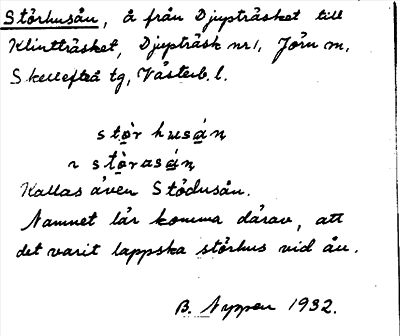 Störhusån, å från Djupträsket till
Klintträsket, Djupträsk nr 1, Jörn sn,
Skellefteå tg, Västerb. l.
stọ̀r husạ́ṇ
~ stọ̀rasạ́ṇ
Kallas även Stödusån.
Namnet lär komma därav, att
det varit lappska störhus vid ån.
B. Nyppen 1932.